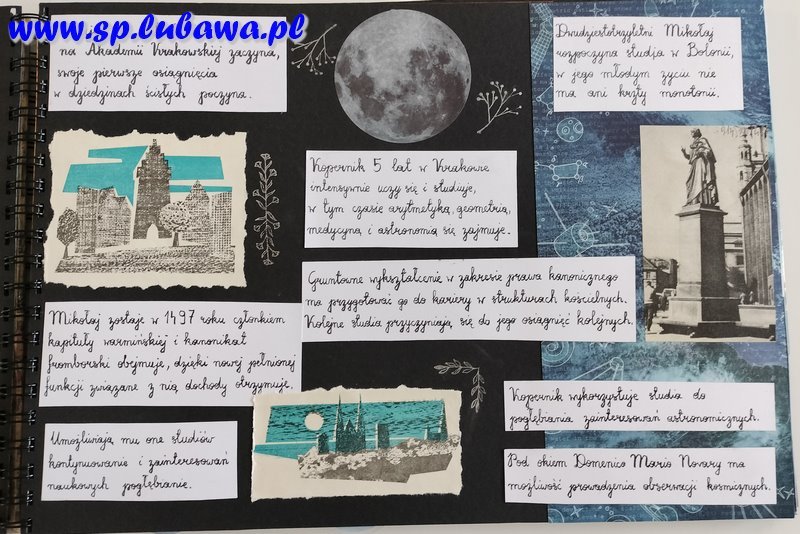 www.sp.lubawa.pl
na Akademii Krakowskiej zaczyna,
swoje pierwsze osiągnięcia
w dziedzinach ścisłych poczyna.
Kopernik 5 lat w Krakowie
intensywnie uczy się i studiuje,
w tym czasie arytmetyką, geometrią,
medycyną i astronomią się zajmuje.
Gruntowne wykształcenie w zakresie prawa kanonicznego
ma przygotować go do kariery w strukturach kościelnych.
Kolejne studia przyczyniają się do jego osiągnięć kolejnych.
Mikołaj zostaje w 1497 roku członkiem
kapituły warmińskiej i kanonikat
fromborski obejmuje, dzięki nowej pełnionej
funkcji związane z nią dochody otrzymuje.
Umożliwiają mu one studiów
kontynuowanie i zainteresowań
naukowych pogłębianie.
Dwudziestotrzyletni Mikołaj
rozpoczyna studia w Bolonii,
w jego młodym życiu nie
ma ani krzty monotonii.
Kopernik wykorzystuje studia do
pogłębiania zainteresowań astronomicznych.
Pod okiem Domenico Maria Novary ma
możliwość prowadzenia obserwacji kosmicznych.